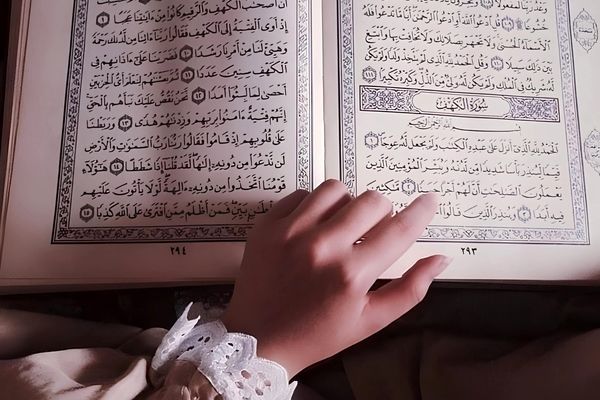 خُشُوعًا ۩ ١٠٩ قُلِ ٱدْعُوا۟ ٱللَّهَ أَوِ ٱدْعُوا۟ ٱلرَّحْمَٰنَ أَيًّا مَّا تَدْعُوا۟ فَلَهُ
ٱلْأَسْمَآءُ ٱلْحُسْنَىٰ وَلَا تَجْهَرْ بِصَلَاتِكَ وَلَا تُخَافِتْ بِهَا وَٱبْتَغِ
بَيْنَ ذَٰلِكَ سَبِيلًا ١١٠ وَقُلِ ٱلْحَمْدُ لِلَّهِ ٱلَّذِى لَمْ يَتَّخِذْ وَلَدًا وَلَمْ يَكُن
لَّهُۥ شَرِيكٌ فِى ٱلْمُلْكِ وَلَمْ يَكُن لَّهُۥ وَلِىٌّ مِّنَ ٱلذُّلِّ وَكَبِّرْهُ تَكْبِيرًۢا ١١١
سُورَةُ الكَهْفِ
بِسْمِ ٱللَّهِ ٱلرَّحْمَٰنِ ٱلرَّحِيمِ
ٱلْحَمْدُ لِلَّهِ ٱلَّذِىٓ أَنزَلَ عَلَىٰ عَبْدِهِ ٱلْكِتَٰبَ وَلَمْ يَجْعَل لَّهُۥ عِوَجَا ١
قَيِّمًا لِّيُنذِرَ بَأْسًا شَدِيدًا مِّن لَّدُنْهُ وَيُبَشِّرَ ٱلْمُؤْمِنِينَ ٱلَّذِينَ
يَعْمَلُونَ ٱلصَّٰلِحَٰتِ أَنَّ لَهُمْ أَجْرًا حَسَنًا ٢ مَّٰكِثِينَ
فِيهِ أَبَدًا ٣ وَيُنذِرَ ٱلَّذِينَ قَالُوا۟
٢٩٣
أَنَّ أَصْحَٰبَ ٱلْكَهْفِ وَٱلرَّقِيمِ كَانُوا۟ مِنْ ءَايَٰتِنَا عَجَبًا ٩
إِذْ أَوَى ٱلْفِتْيَةُ إِلَى ٱلْكَهْفِ فَقَالُوا۟ رَبَّنَآ ءَاتِنَا مِن لَّدُنكَ رَحْمَةً
وَهَيِّئْ لَنَا مِنْ أَمْرِنَا رَشَدًا ١٠ فَضَرَبْنَا عَلَىٰٓ ءَاذَانِهِمْ فِى
ٱلْكَهْفِ سِنِينَ عَدَدًا ١١ ثُمَّ بَعَثْنَٰهُمْ لِنَعْلَمَ أَىُّ ٱلْحِزْبَيْنِ
أَحْصَىٰ لِمَا لَبِثُوٓا۟ أَمَدًا ١٢ نَّحْنُ نَقُصُّ عَلَيْكَ نَبَأَهُم بِٱلْحَقِّ
إِنَّهُمْ فِتْيَةٌ ءَامَنُوا۟ بِرَبِّهِمْ وَزِدْنَٰهُمْ هُدًى ١٣ وَرَبَطْنَا
عَلَىٰ قُلُوبِهِمْ إِذْ قَامُوا۟ فَقَالُوا۟ رَبُّنَا رَبُّ ٱلسَّمَٰوَٰتِ وَٱلْأَرْضِ
لَن نَّدْعُوَا۟ مِن دُونِهِۦٓ إِلَٰهًا لَّقَدْ قُلْنَآ إِذًا شَطَطًا ١٤ هَٰٓؤُلَآءِ
قَوْمُنَا ٱتَّخَذُوا۟ مِن دُونِهِۦٓ ءَالِهَةً لَّوْلَا يَأْتُونَ عَلَيْهِم
بَيِّنٍ فَمَنْ أَظْلَمُ مِمَّنِ ٱفْتَرَىٰ عَلَى ٱللَّهِ كَذِبًا ١٥
٢٩٤